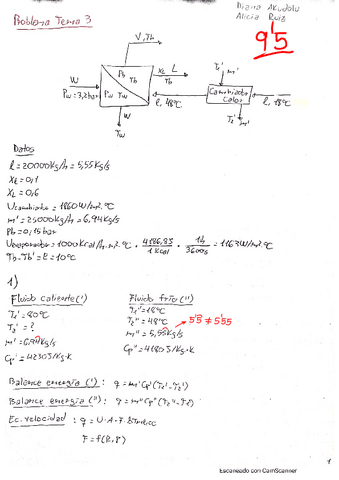 Problema Tema 3
Diana Akudolu
Alicia Ruiz
9'5
V, Tb
W
Pw=3,2bar
Pb Tb
Pw Tw
XL L
Tb
l, 48ºC
Cambiador
Calor
l, 18ºC
W
Tw
Datos
l = 20000Kg/h = 5,55Kg/s
Xl = 0,1
XL = 0,6
Ucambiador = 1860W/m2.ºC
m' = 25000Kg/h = 6,94Kg/s
Pb = 0,15 bar
Uevaporador = 1000Kcal/h.m2.ºC · 4186,8J / 1Kcal · 1h / 3600s = 1163W/m2.ºC
Tb - Tb' = E = 10ºC
1)
Fluido caliente(')
T1' = 80ºC
T2' = ?
m' = 6,94Kg/s
Cp' = 4230J/Kg·K
Fluido frío('')
T1'' = 18ºC
T2'' = 48ºC
m'' = 5,55Kg/s
5'5 ≠ 5'55
Cp'' = 4180J/Kg·K
Balance energía ('): q = m'Cp'(T1'-T2')
Balance energía (''): q = m''Cp''(T2''-T1'')
Ec. velocidad : q = U·A·F·
F = f(R,P)
1
Escaneado con CamScanner